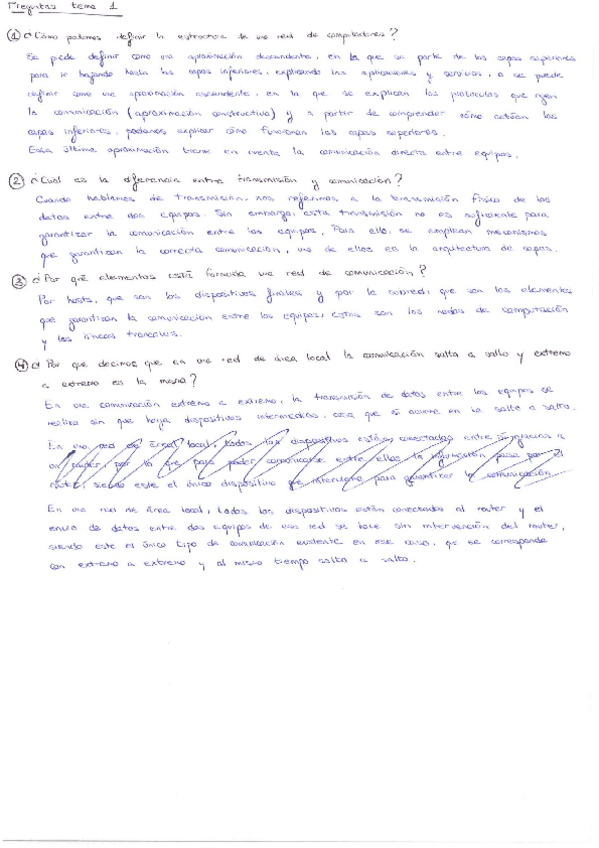 Preguntas tema 1
① ¿Cómo podemos definir la estructura de una red de computadores?
Se puede definir como una aproximación descendente, en la que se parte de las capas superiores
para ir bajando hasta las capas inferiores, explicando las aplicaciones y servicios, o se puede
definir como una aproximación ascendente, en la que se explican los protocolos que rigen
la comunicación (aproximación constructiva) y a partir de comprender cómo actúan las
capas inferiores, podamos explicar cómo funcionan las capas superiores.
Esta última aproximación tiene en cuenta la comunicación directa entre equipos.
② ¿Cuál es la diferencia entre transmisión y comunicación?
Cuando hablamos de transmisión, nos referimos a la transmisión física de los
datos entre dos equipos. Sin embargo, esta transmisión no es suficiente para
garantizar la comunicación entre los equipos. Para ello, se emplean mecanismos
que garantizan la correcta comunicación, uno de ellos es la arquitectura de capas.
③ ¿Por qué elementos está formada una red de comunicación?
Por hosts, que son los dispositivos finales y por la subred, que son los elementos
que garantizan la comunicación entre los equipos, estos son los nodos de computación
y las líneas troncales.
④ ¿Por que decimos que en una red de área local la comunicación salto a salto y extremo
a extremo es la misma?
En una comunicación extremo a extremo, la transmisión de datos entre los equipos se
realiza sin que haya dispositivos intermedios, cosa que sí ocurre en la salto a salto.
En una red de área local, todos los dispositivos están conectados entre sí gracias a
un router, por lo que para poder comunicarse entre ellos la información pasa por el
router, siendo este el único dispositivo que interviene para garantizar la comunicación.
En una red de área local, todos los dispositivos están conectados al router y el
envío de datos entre dos equipos de una red se hace sin intervención del router,
siendo este el único tipo de comunicación existente en ese caso, que se corresponde
con extremo a extremo y al mismo tiempo salto a salto.